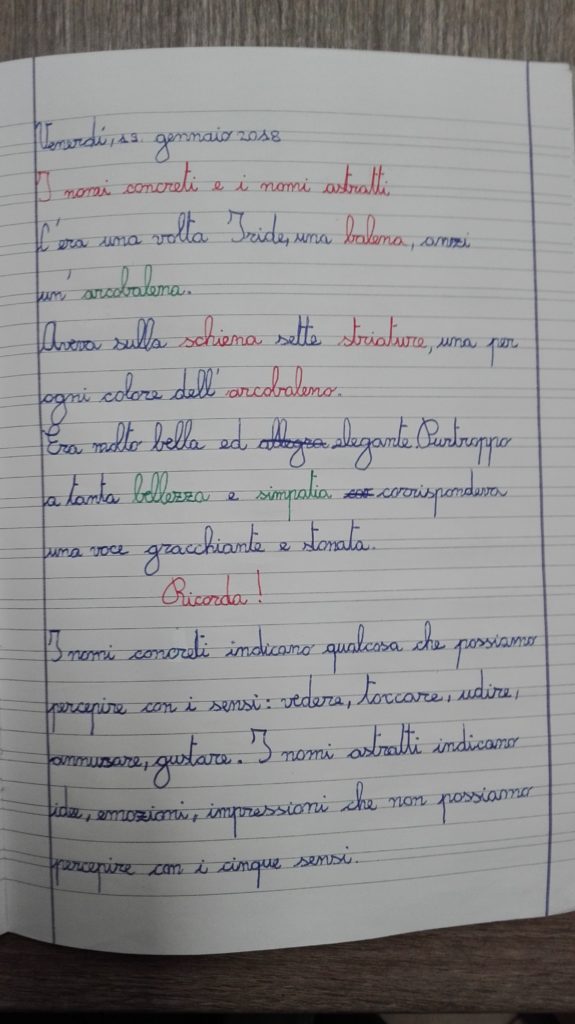 Venerdí, 19. gennaio 2018
I nomi concreti e i nomi astratti
C'era una volta Iride, una balena, anzi
un' arcobalena.
Aveva sulla schiena sette striature, una per
ogni colore dell' arcobaleno.
Era molto bella ed allegra elegante. Purtroppo
a tanta bellezza e simpatia cor corrispondeva
una voce gracchiante e stonata.
Ricorda!
I nomi concreti indicano qualcosa che possiamo
percepire con i sensi: vedere, toccare, udire,
annusare, gustare. I nomi astratti indicano
idee, emozioni, impressioni che non possiamo
percepire con i cinque sensi.